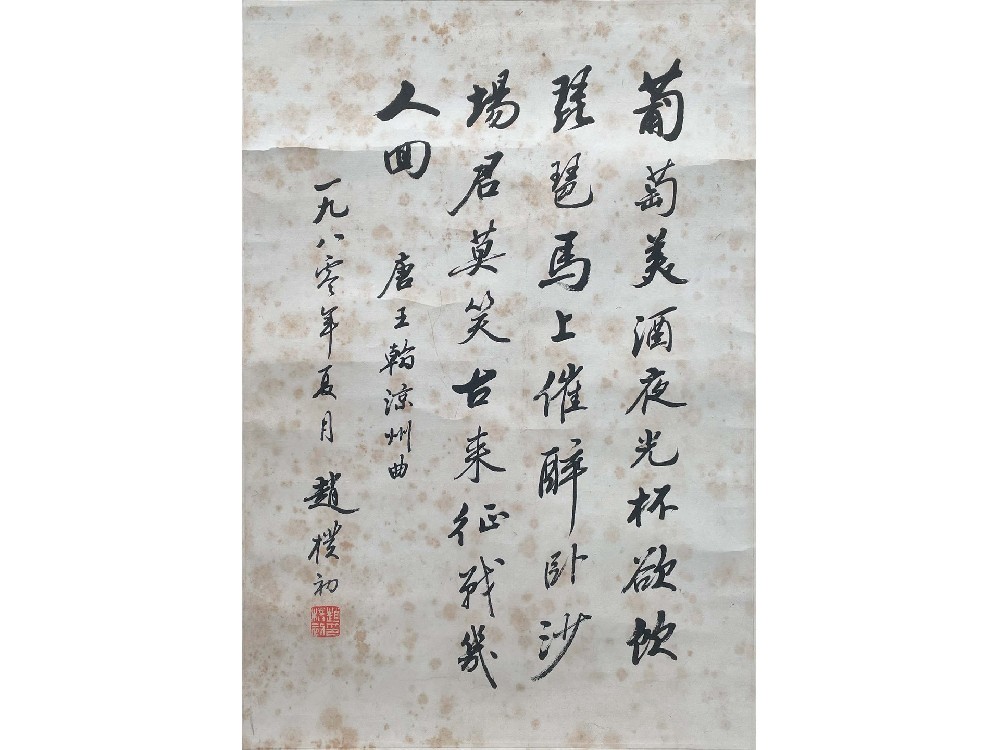 葡萄美酒夜光杯欲飲
琵琶馬上催醉卧沙
場君莫笑古来征战幾
人回
唐王翰涼州曲
一九八零年夏月
趙樸初
趙樸初印